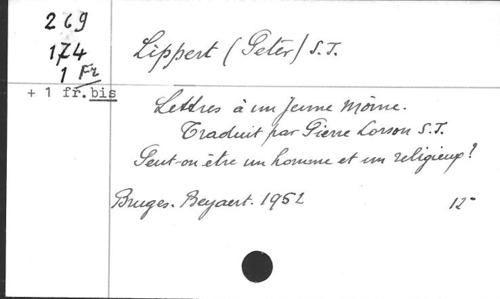 269
174
1 Fr
+ 1 fr. bis
Lippert (Peter) S.J.
Lettres à un Jeune Moine.
Traduit par Pierre Lorson S.J.
Peut-on être un homme et un religieux?
Bruges. Beyaert. 1952
12-